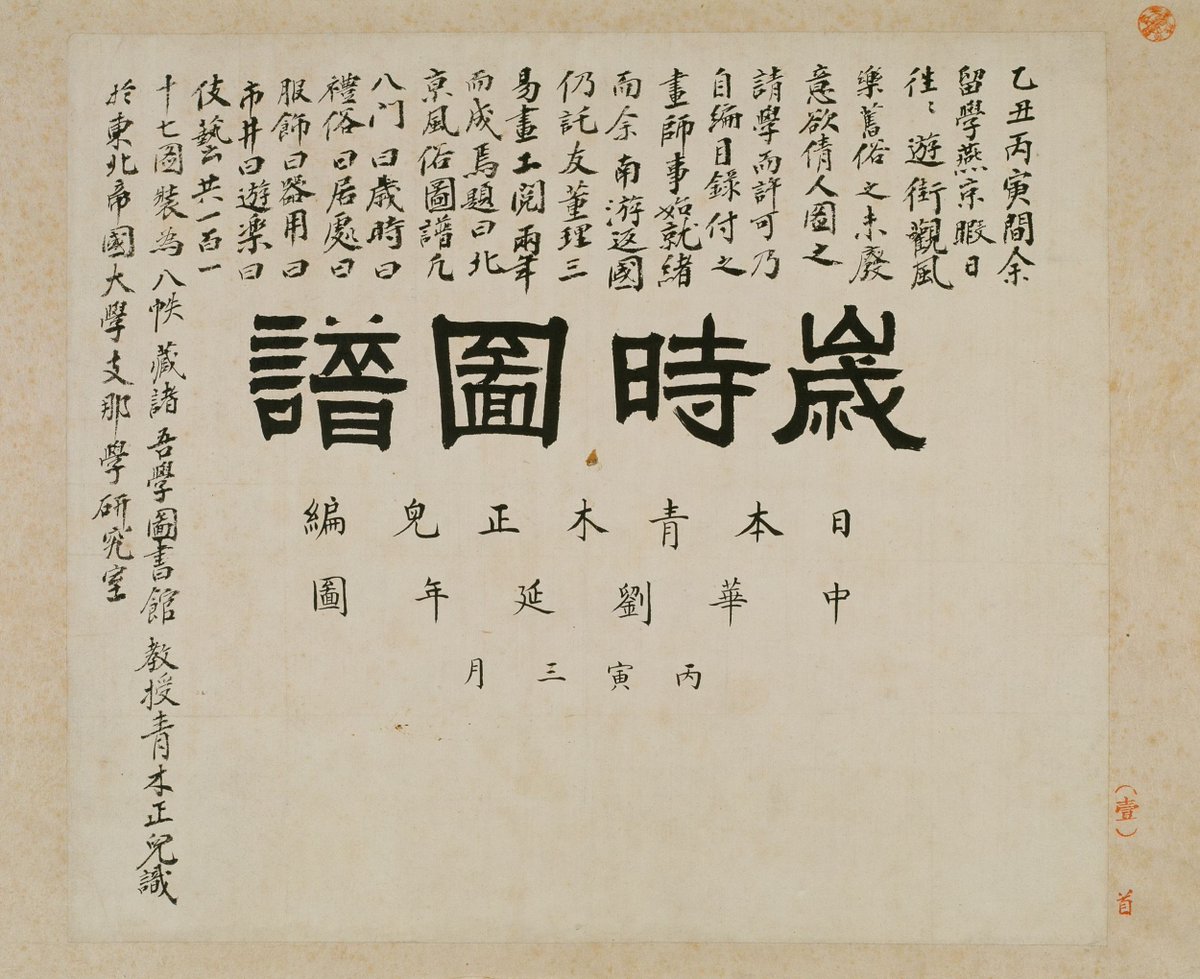 乙丑丙寅間余
留學燕京暇日
徃〻遊街觀風
樂舊俗之未廢
意欲倩人圖之
請學而許可乃
自編目錄付之
畫師事始就緒
而余南游返國
仍託友董理三
易畫工閲兩年
而成焉題曰北
京風俗圖譜凡
八门曰歳時曰
禮俗曰居處曰
服飾曰器用曰
市井曰遊樂曰
伎藝共一百一
十七圖裝為八帙藏諸吾學圖書館教授青木正兒識
於東北帝國大學支那學研究室
歳時圖譜
日本青木正兒編
中華劉延年圖
丙寅三月
（壹）首